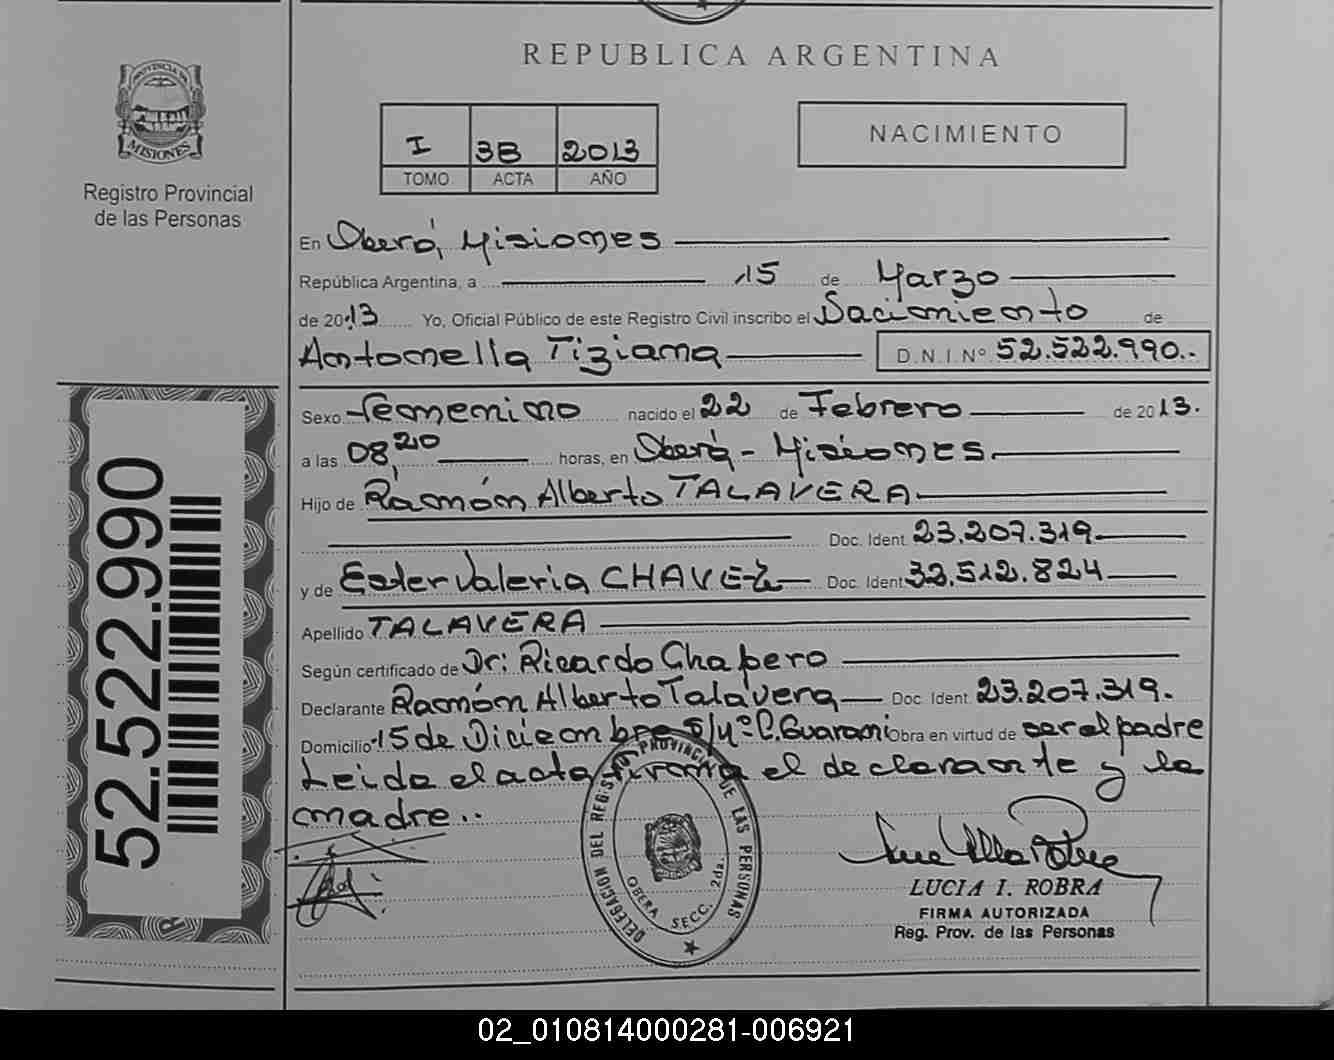 REPUBLICA ARGENTINA
PROVINCIA DE
MISIONES
Registro Provincial
de las Personas
I 3B 2013
TOMO ACTA AÑO
NACIMIENTO
En Oberá, Misiones
República Argentina, a 15 de Marzo
de 2013 Yo, Oficial Público de este Registro Civil inscribo el Nacimiento de
Antonella Tiziana D.N.I.Nº 52.522.990..
Sexo femenino nacido el 22 de Febrero de 2013.
a las 08,20 horas, en Oberá - Misiones.
Hijo de Ramón Alberto TALAVERA
Doc. Ident. 23.207.319
y de Ester Valeria CHAVEZ Doc. Ident. 32.512.824
Apellido TALAVERA
Según certificado de Dr: Ricardo Chapero
Declarante Ramón Alberto Talavera Doc. Ident. 23.207.319.
Domicilio 15 de Diciembre S/Nº C. Guaraní Obra en virtud de ser el padre
Leida el acta firma el declarante y la
madre..
52.522.990
DELEGACION DEL REGISTRO PROVINCIAL DE LAS PERSONAS
OBERA SECC. 2da.
LUCIA I. ROBRA
FIRMA AUTORIZADA
Reg. Prov. de las Personas
02_010814000281-006921